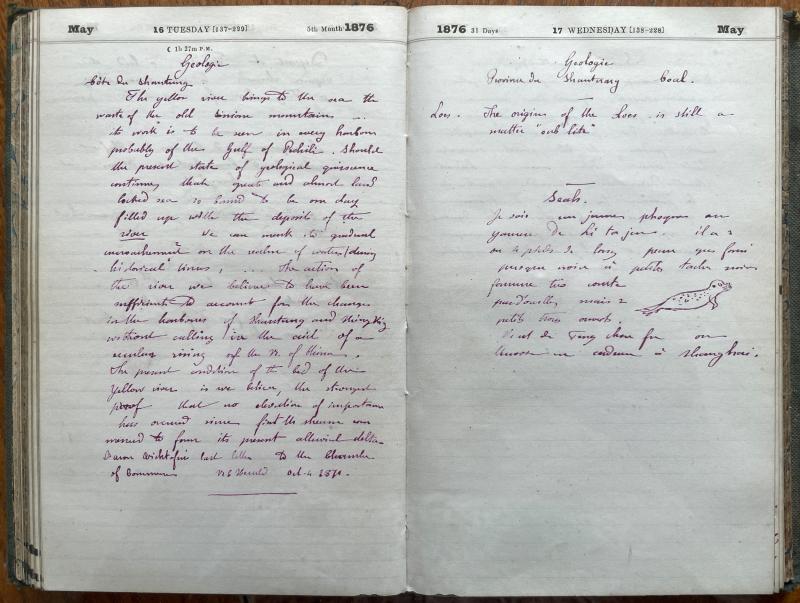 May 16 TUESDAY [137-229] 5th Month 1876
☾ 1h 27m P.M.
Geologie
Côte du Shantung.
The yellow river brings to the sea the
waste of the old mountains ...
its work is to be seen in every harbour
probably of the Gulf of Pechili. Should
the present state of geological quiescence
continue that great and almost land
locked sea is bound to be one day
filled up with the deposits of the
river We can mark its gradual
encroachement on the realm of waters/during
historical times, ... The action of
the river we believe to have been
sufficient to account for the changes
in the harbours of Shantung and
without calling in the aid of a
secular rising of the N. of China.
The present condition of the bed of the
Yellow river is we believe, the strongest
proof that no elevation of importance
has occured since first the stream com
menced to form its present alluvial delta
Baron last letter to the Chamber
of Commerce N.C. Herald Oct. 4
1876 31 Days 17 WEDNESDAY [138-228] May
Geologie
Province du Shantung Coal.
Loes. The origine of the Loes is still a
matter "sub lite"
Seals.
Je vois un jeune phoque au
de il a 2
ou pieds de long, peau gris foncé
presque noire à petites taches noires
très courte
pas d'oreilles, mais 2
petits trous ouverts.
Vient de
en à Shanghai.